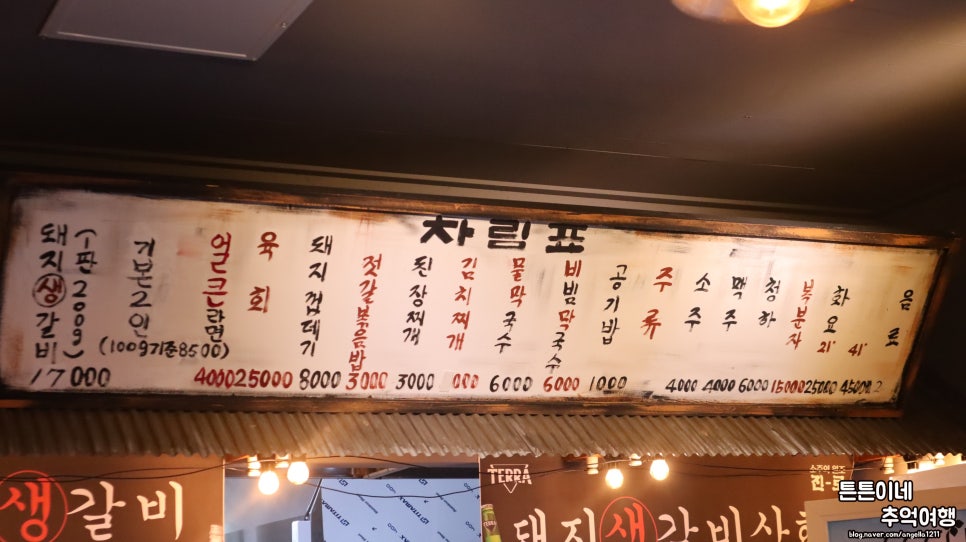 차림표
돼지생갈비
(一판200g)
17000
기본2인
(100g기준8500)
얼큰란면
4000
육회
25000
돼지껍데기
8000
젓갈볶음밥
3000
된장찌개
3000
김치찌개
000
물막국수
6000
비빔막국수
6000
공기밥
1000
주류
소주
4000
맥주
4000
청하
6000
복분자
15000
화요
21°
41°
25000
음료
생갈비
TERRA
TITANMAX
돼지생갈비사
튼튼이네
추억여행
blog.naver.com/angella1211